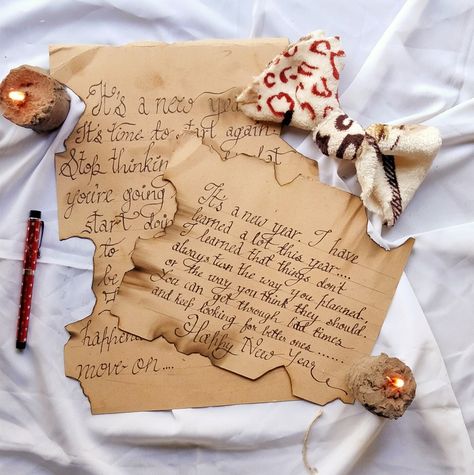 It's a new
It's time to start again
Stop thinking
you're going
start
to
be
happen
move on....
It's a new year. I have
learned a lot this year....
I learned that things don't
always turn the way you planned
or the way you think they should.
You can get through bad times
and keep looking for better ones......
Happy New Year